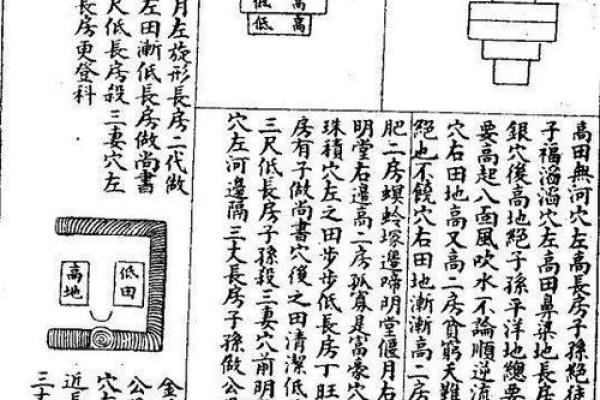 高
低
高
低
高田無河穴左高長房子孫絕徒
子福滔滔穴左高田鼻梁地長房
銀穴後高地絕子孫平洋地總要
要高起八面風吹水不論順逆流
穴右田地高又高二房貧窮天難
絕也不饒穴右田地漸漸高二房
肥二房螟蛉塚邊啼明堂偃月右
明堂右邊高二房孤寡是富豪穴
珠積穴左之田步步低長房丁旺
房有子做尚書穴後之田清潔低
三尺低長房子孫殺三妻穴前明
穴左河邊隔三丈長房子孫做公
月左旋形長房二代做
左田漸低長房做尚書
尺低長房殺三妻穴左
長房更登科
低田
高地
金
公
穴左
近長
三十